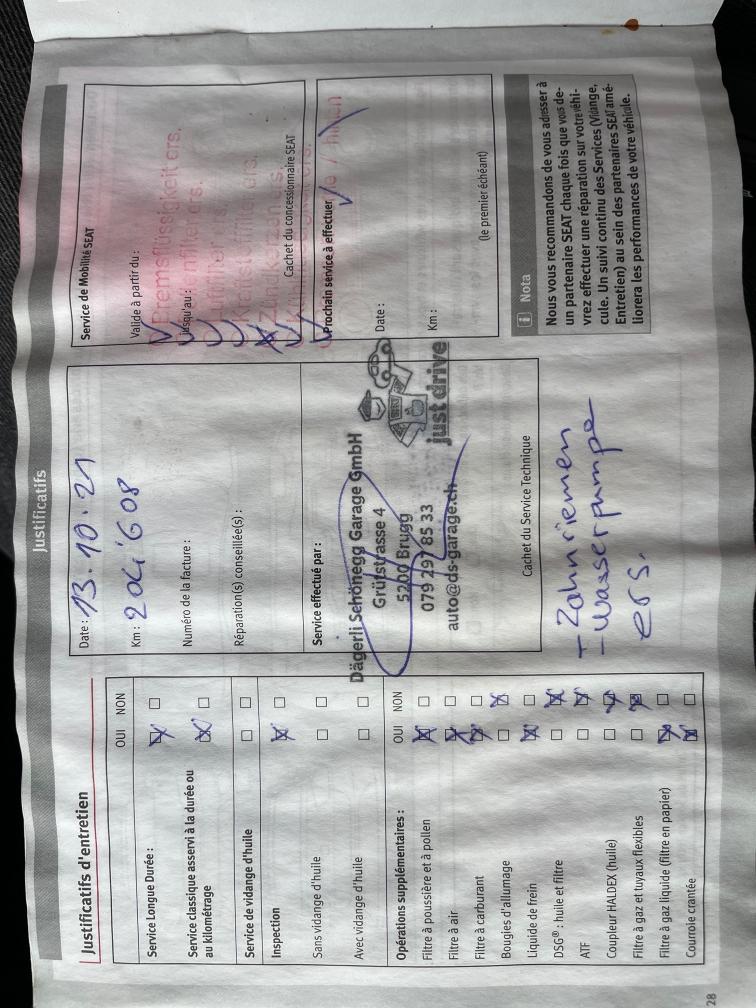 Justificatifs
Justificatifs d'entretien
OUI NON
Service Longue Durée :
Service classique asservi à la durée ou
au kilométrage
Service de vidange d'huile
Inspection
Sans vidange d'huile
Avec vidange d'huile
Opérations supplémentaires :
OUI NON
Filtre à poussière et à pollen
Filtre à air
Filtre à carburant
Bougies d'allumage
Liquide de frein
DSG® : huile et filtre
ATF
Coupleur HALDEX (huile)
Filtre à gaz et tuyaux flexibles
Filtre à gaz liquide (filtre en papier)
Courroie crantée
Date : 13.10.21
Km : 204'608
Numéro de la facture :
Réparation(s) conseillée(s) :
Service effectué par :
Dägerli Schönegg Garage GmbH
Grütstrasse 4
5200 Brugg
079 297 85 33
auto@ds-garage.ch
just drive
Cachet du Service Technique
- Zahnriemen
- Wasserpumpe
ers.
Service de Mobilité SEAT
Valide à partir du :
Bremsflüssigkeit ers.
Jusqu'au :
Cachet du concessionnaire SEAT
Prochain service à effectuer
Date :
Km :
(le premier échéant)
Nota
Nous vous recommandons de vous adresser à
un partenaire SEAT chaque fois que vous de-
vrez effectuer une réparation sur votre véhi-
cule. Un suivi continu des Services (Vidange,
Entretien) au sein des partenaires SEAT amé-
liorera les performances de votre véhicule.
28